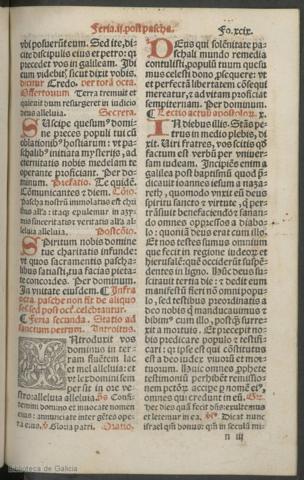 Feria.ij.post pascha. Fo.xcix.
vbi posuerūt eum. Sed ite, di-
cite discipulis eius et petro: q̄
precedet vos in galileam. Ibi
eum videbit{, sicut dixit vobis.
dicitur Credo. Per totā octa.
Offertorium Terra tremuit et
quieuit dum resurgeret in iudicio
deus alleluia. Secreta.
Suscipe quesum{ domi
ne preces populi tui cū
oblationib{ hostiarum: vt pa-
schalib{ initiata mysterijs, ad
eternitatis nobis medelam te
operante proficiant. Per
dominum. Prefatio. Te quidē.
Cōmunicantes z diem. Cōio.
Pascha nostrū immolatus est chri
stus alľa: itaq epulemur in azy-
mis sinceritatis et veritatis alľa al-
leluia alleluia. Postcōio.
Spiritum nobis domine
tue charitatis infunde:
vt quos sacramentis pascha-
libus satiasti, tua facias pieta-
te concordes. Per dominum.
In vnitate eiusdem. Infra
octa. pasche non fit de aliquo
festo sed post oct. celebratur.
Feria secunda. Statio ad
sanctum petrum. Introitus.
Introduxit vos
dominus in ter-
ram fluētem lac
et mel alleluia: et
vt lex domini sem
per sit in ore ve-
stro: alleluia alleluia. ps Confi-
temini domino et inuocate nomen
eius: annunciate inter gētes ope-
ra eius. Gloria patri. Oratio.
Deus qui solēnitate pa-
schali mundo remedia
contulisti, populū tuum quesu-
mus celesti dono prosequere: vt
et perfectā libertatem cōsequi
mereatur, et ad vitam proficiat
sempiternam. Per dominum.
Lectio actuū apostolorum.
In diebus illis. Stās pe-
trus in medio plebis, di-
xit. Uiri fratres, vos scitis qđ
factum est verbū per vniuer-
sam iudeam. Incipiēs enim a
galilea post baptismū quod p̄-
dicauit ioannes iesum a naza-
reth, quomodo vnxit eū deus
spiritu sancto et virtute, qui per-
trāsiit benefaciēdo et sanan-
do omnes oppressos a diabo-
lo: quoniā deus erat cum illo.
Et nos testes sumus omnium
que fecit in regione iudeorum et
hierusalē: quē occiderūt suspē-
dentes in ligno. Hūc deus susci-
tauit tertia die: et dedit eum
manifestū fieri nō omni popu-
lo, sed testibus preordinatis a
deo nobis qui manducauimus et
bibimus cum illo, postquā surre-
xit a mortuis. Et precepit no-
bis predicare populo et testifi-
cari: quia ipse est qui cōstitutus
est a deo iudex viuorū et mor-
tuorum. Huic omnes prophete
testimoniū perhibēt remissio-
nem peccatorum accipere per nomē eius,
omnes qui credunt in eū. Gr.
Hec dies quā fecit dn̄s: exultemus
et letemur in ea. Dicat nunc
israel qm̄ bonus: qm̄ in seculū mi-
n iij
Biblioteca de Galicia